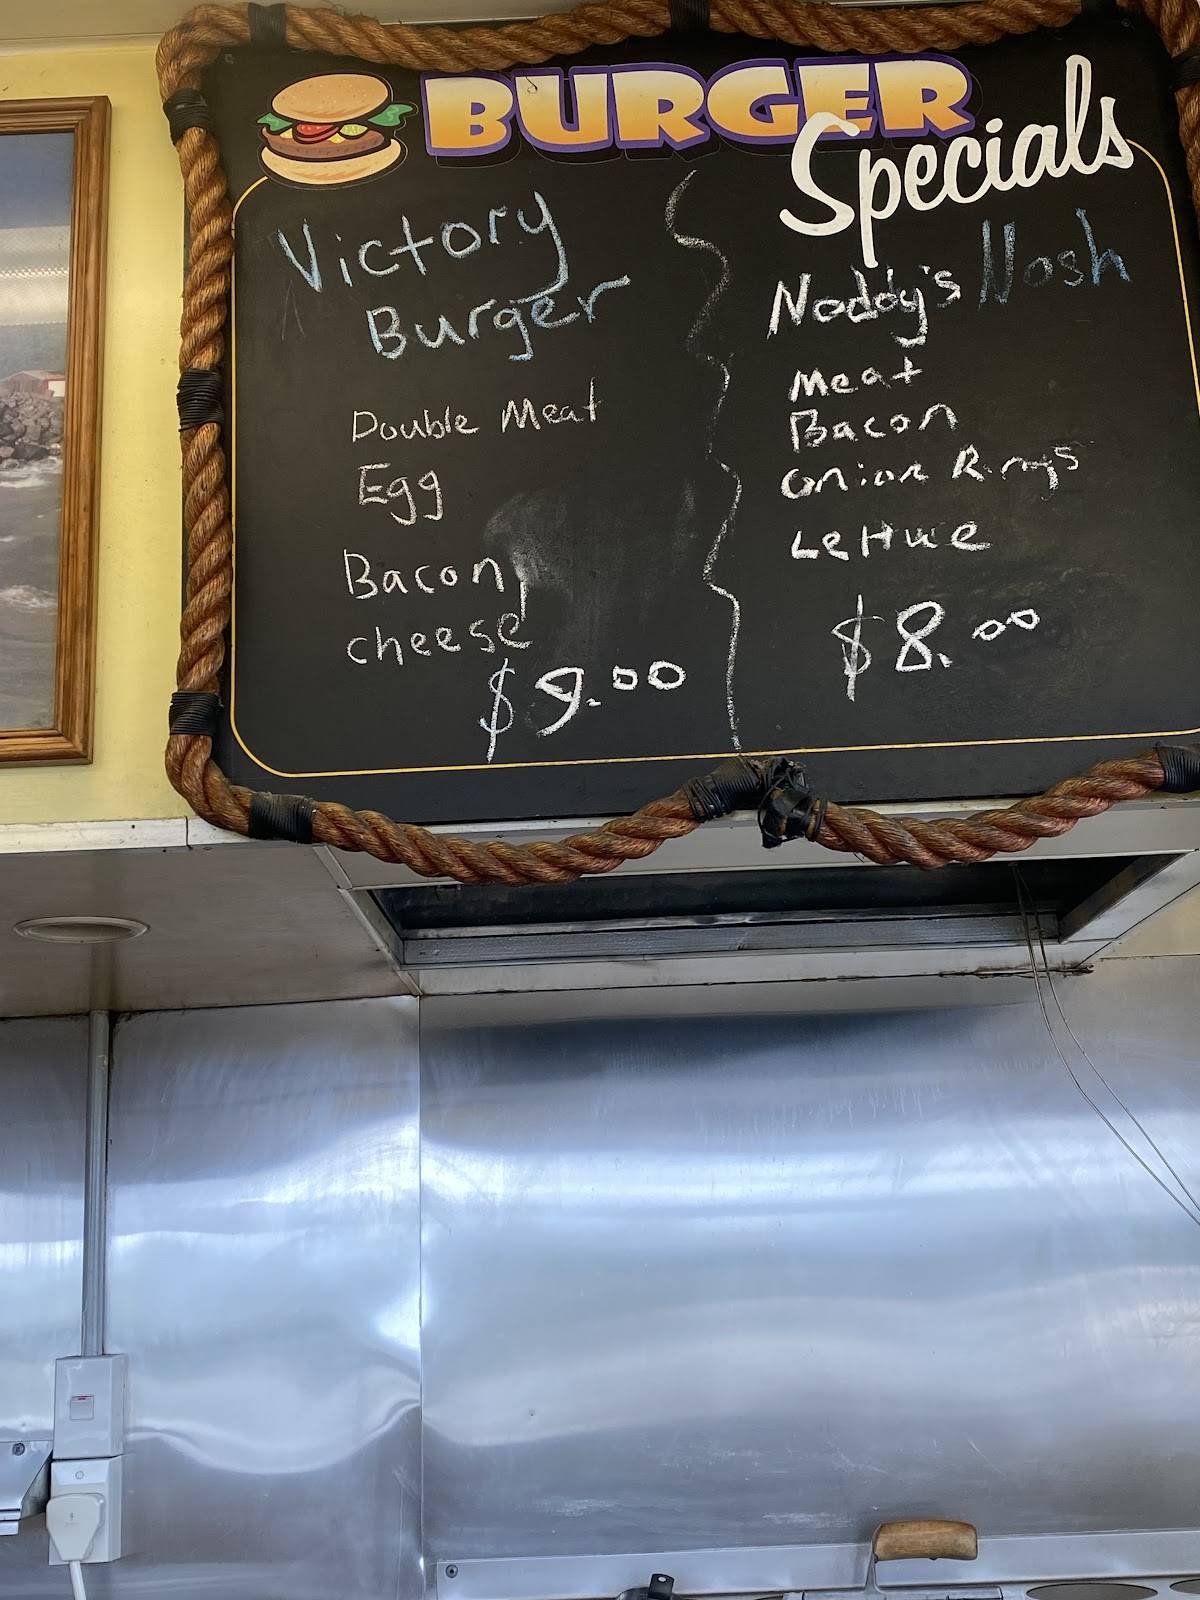 BURGER
Specials
Victory
Burger
Double Meat
Egg
Bacon,
cheese
$9.00
Noddy's Nosh
Meat
Bacon
onion Rings
Lettuce
$8.00